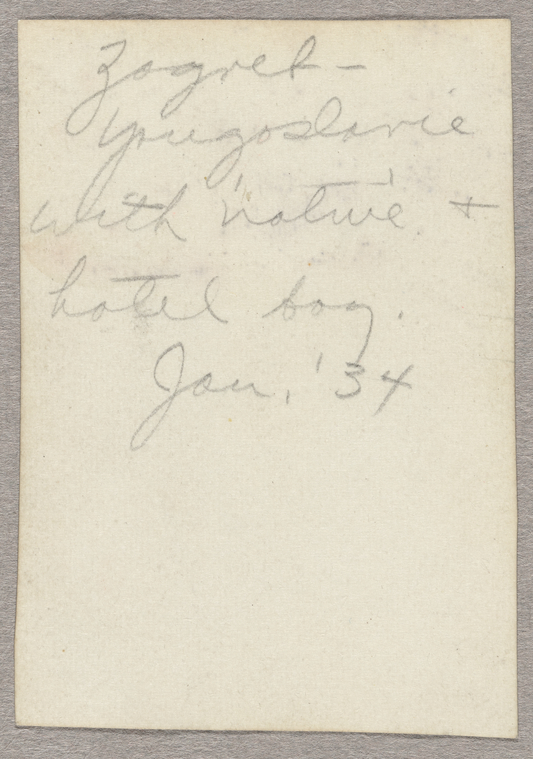 Zagreb -
Yougoslavie
with 'native' +
hotel boy.
Jan. '34